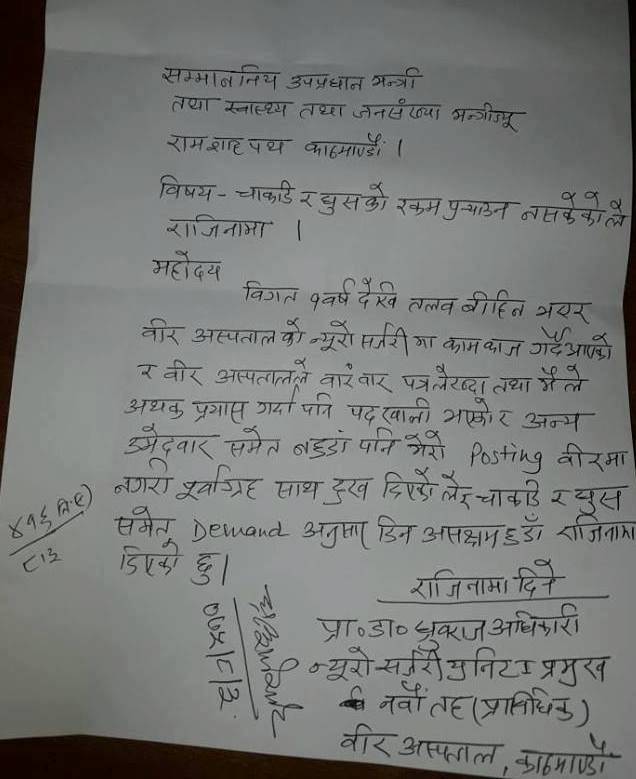 सम्माननिय उपप्रधान मन्त्री
तथा स्वास्थ्य तथा जनसंख्या मन्त्रीज्यू
रामशाह पथ काठमाण्डौं ।
विषय - चाकडि र घुसको रकम पुर्‍याउन नसकेकोले
राजिनामा ।
महोदय
विगत १ वर्ष देखि तलव बीहिन भएर
वीर अस्पतालको न्यूरो सर्जरीमा कामकाज गर्दै आएको
र वीर अस्पतालले वारंवार पत्र लेख्दा तथा मैले
अथक प्रयास गर्दा पनि पद खाली भएको र अन्य
उमेदवार समेत नहुडां पनि मेरो Posting वीरमा
नगरी पूर्वाग्रह साथ दुख दिएकोले र चाकडि र घुस
समेत Demand अनुसार दिन असक्षम हुडाँ राजिनामा
दिएको छु।
राजिनामा दिने
प्रा॰ डा॰ ध्रुवराज अधिकारी
न्यूरो सर्जरी युनिट I प्रमुख
नवौं तह (प्राविधिक)
वीर अस्पताल, काठमाण्डौं